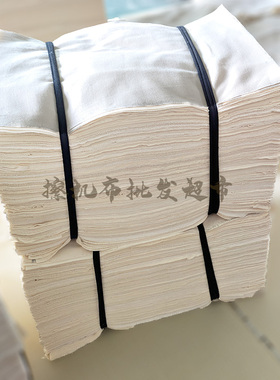 擦机布批发超市